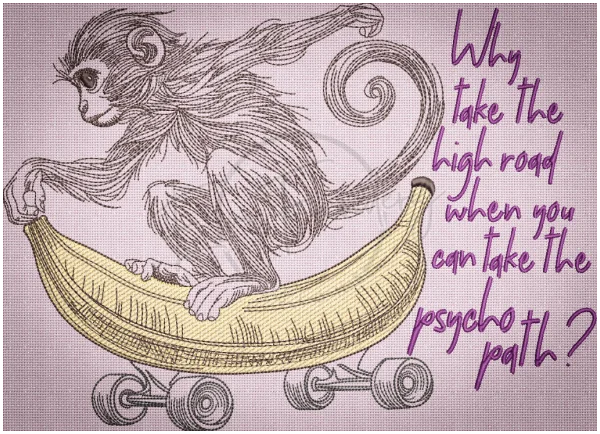 Why
take the
high road
when you
can take the
psycho
path?